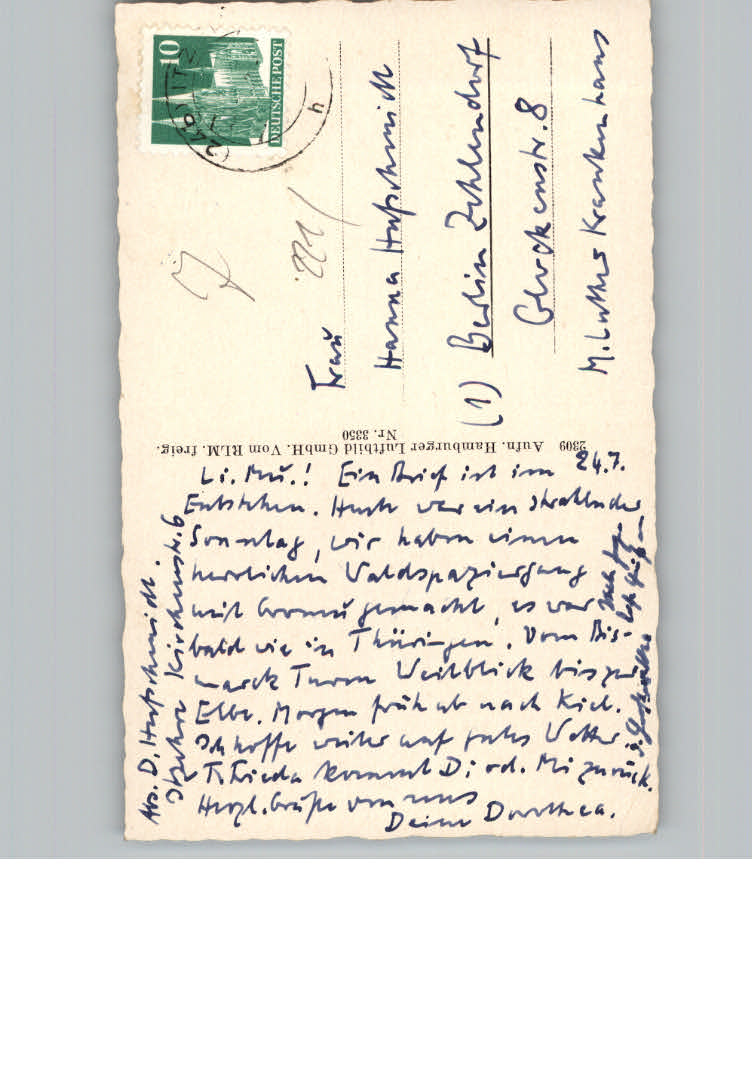 10
DEUTSCHE POST
(24b) ITZ
h
221/
Frau
Hanna Hufschmidt
(1) Berlin Zehlendorf
Glockenstr. 8
M. Luther Krankenhaus
2309 Aufn. Hamburger Luftbild GmbH. Vom RLM. freig.
Nr. 3350
24.7.
Li. Mu.! Ein Brief ist im
Entstehen. Heute war ein strahlender
Sonntag, wir haben einen
herrlichen Waldspaziergang
mit gemacht, es war
bald wie in Thüringen. Vom Bis-
marck Turm Weitblick bis zur
Elbe. Morgen früh ab nach Kiel.
Ich hoffe weiter auf gutes Wetter
T. Frieda kommt Di od. Mi zurück.
Herzl. Grüße von uns
Deine Dorothea.
Abs. D. Hufschmidt.
Itzehoe Kirchenstr. 6